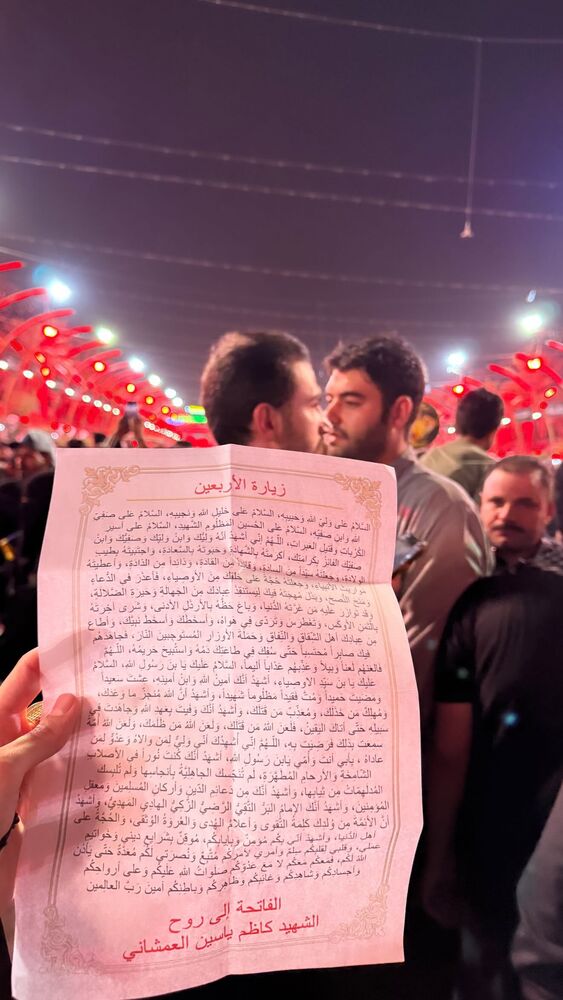 زيارة الأربعين
السَّلامُ على وَليِّ الله وحَبيبِه، السَّلامُ على خَليلِ اللهِ ونَجيبِه، السَّلامُ على صَفيِّ
اللهِ وابنِ صَفيِّه، السَّلامُ على الحُسينِ المَظلُومِ الشَّهيدِ، السَّلامُ على أسيرِ
الكُرُباتِ وقَتيلِ العَبَراتِ، اللَّهُمَّ إنّي أشهَدُ أنَّهُ وَليُّكَ وابنُ وَليِّكَ وصَفيُّكَ وابنُ
صَفيِّكَ الفائزُ بكَرامَتِكَ، أكرَمتَهُ بالشَّهادةِ وحَبوتَهُ بالسَّعادةِ، واجتَبيتَهُ بطِيبِ
الوِلادةِ، وجَعَلتَهُ سيّداً من السادةِ، وقائداً من القادَةِ، وذائداً من الذّادَةِ، وأعطَيتَهُ
مَواريثَ الأنبِياءِ، وجَعَلتَهُ حُجَّةً على خَلقِكَ مِنَ الأوصِياءِ، فأعذَرَ في الدُّعاءِ
ومَنَحَ النُّصحَ، وبَذَلَ مُهجَتَهُ فيكَ ليَستَنقِذَ عِبادَكَ من الجَهالةِ وحَيرةِ الضَّلالةِ،
وقد تَوازَرَ عليهِ مَن غَرَّتهُ الدُّنيا، وباعَ حَظَّهُ بالأرذَلِ الأدنى، وشَرى آخِرتَهُ
بالثَّمنِ الأوكَسِ، وتَغَطرَسَ وتَردّى في هَواهُ، وأسخَطَكَ وأسخَطَ نبيَّكَ، وأطاعَ
مِن عِبادِكَ أهلَ الشِّقاقِ والنِّفاقِ وحَمَلَةَ الأوزارِ المُستَوجِبينَ النّارَ، فجاهَدَهُم
فيكَ صابِراً مُحتَسِباً حتّى سُفِكَ في طاعَتِكَ دَمُهُ واستُبيحَ حَريمُهُ، اللَّهُمَّ
فالعَنهُم لَعناً وَبيلاً وعَذِّبهُم عَذاباً أليماً، السَّلامُ عليكَ يا بنَ رسُولِ اللهِ، السَّلامُ
عليكَ يا بنَ سيّدِ الأوصِياءِ، أشهَدُ أنَّكَ أمينُ اللهِ وابنُ أمينِه، عِشتَ سعيداً
ومَضَيتَ حَميداً ومُتَّ فَقيداً مَظلُوماً شَهيداً، وأشهَدُ أنَّ اللهَ مُنجِزٌ ما وَعَدَكَ،
ومُهلِكٌ من خَذَلَكَ، ومُعَذِّبٌ من قَتَلَكَ، وأشهَدُ أنَّكَ وَفَيتَ بعَهدِ اللهِ وجاهَدتَ في
سبيلِه حتى أتاكَ اليَقينُ، فلَعَنَ اللهُ مَن قَتَلَكَ، ولَعَنَ اللهُ مَن ظَلَمَكَ، ولَعَنَ اللهُ أُمَّةً
سمعت بذلك فرَضِيَت به، اللَّهُمَّ إنّي أُشهِدُكَ أنّي وَليٌّ لِمَن والاهُ وعَدُوٌّ لِمَن
عاداهُ، بأبي أنتَ وأُمّي يابنَ رسُولِ الله، أشهَدُ أنَّكَ كُنتَ نُوراً في الأصلابِ
الشّامِخةِ والأرحامِ المُطَهَّرَةِ، لم تُنَجِّسكَ الجاهِليَّةُ بأنجاسِها ولم تُلبِسكَ
المُدلَهِمّاتُ من ثِيابِها، وأشهَدُ أنَّكَ مِن دَعائمِ الدِّينِ وأركانِ المُسلمينَ ومَعقِلِ
المُؤمِنينَ، وأشهَدُ أنَّكَ الإمامُ البَرُّ التَّقيُّ الرَّضيُّ الزَّكيُّ الهادِي المَهديُّ، وأشهَدُ
أنَّ الأئمَّةَ مِن وُلدِكَ كلِمَةُ التَّقوى وأعلامُ الهُدى والعُروَةُ الوُثقى، والحُجَّةُ على
أهل الدُّنيا، وأشهَدُ أنّي بكُم مُؤمِنٌ وبإيابِكُم، مُوقِنٌ بشَرايعِ دِيني وخَواتيمِ
عملي، وقَلبي لقَلبِكُم سِلمٌ وأمري لأمرِكُم مُتَّبِعٌ ونُصرَتي لكُم مُعَدَّةٌ حتّى يأذَنَ
اللهُ لكُم، فمعَكُم معَكُم لا معَ عَدُوِّكُم صلَواتُ اللهِ عليكُم وعَلى أرواحِكُم
وأجسادِكُم وشاهِدِكُم وغائبِكُم وظاهِرِكُم وباطِنِكُم آمينَ ربَّ العالمين
الفاتحة إلى روح
الشهيد كاظم ياسين العمشاني